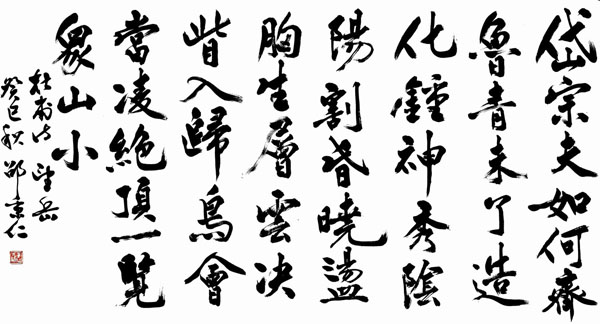 岱宗夫如何齊
魯青未了造
化鍾神秀陰
陽割昏曉盪
胸生層雲决
眥入歸鳥會
當凌絕頂一覽
衆山小
杜甫詩望岳
癸巳秋邵